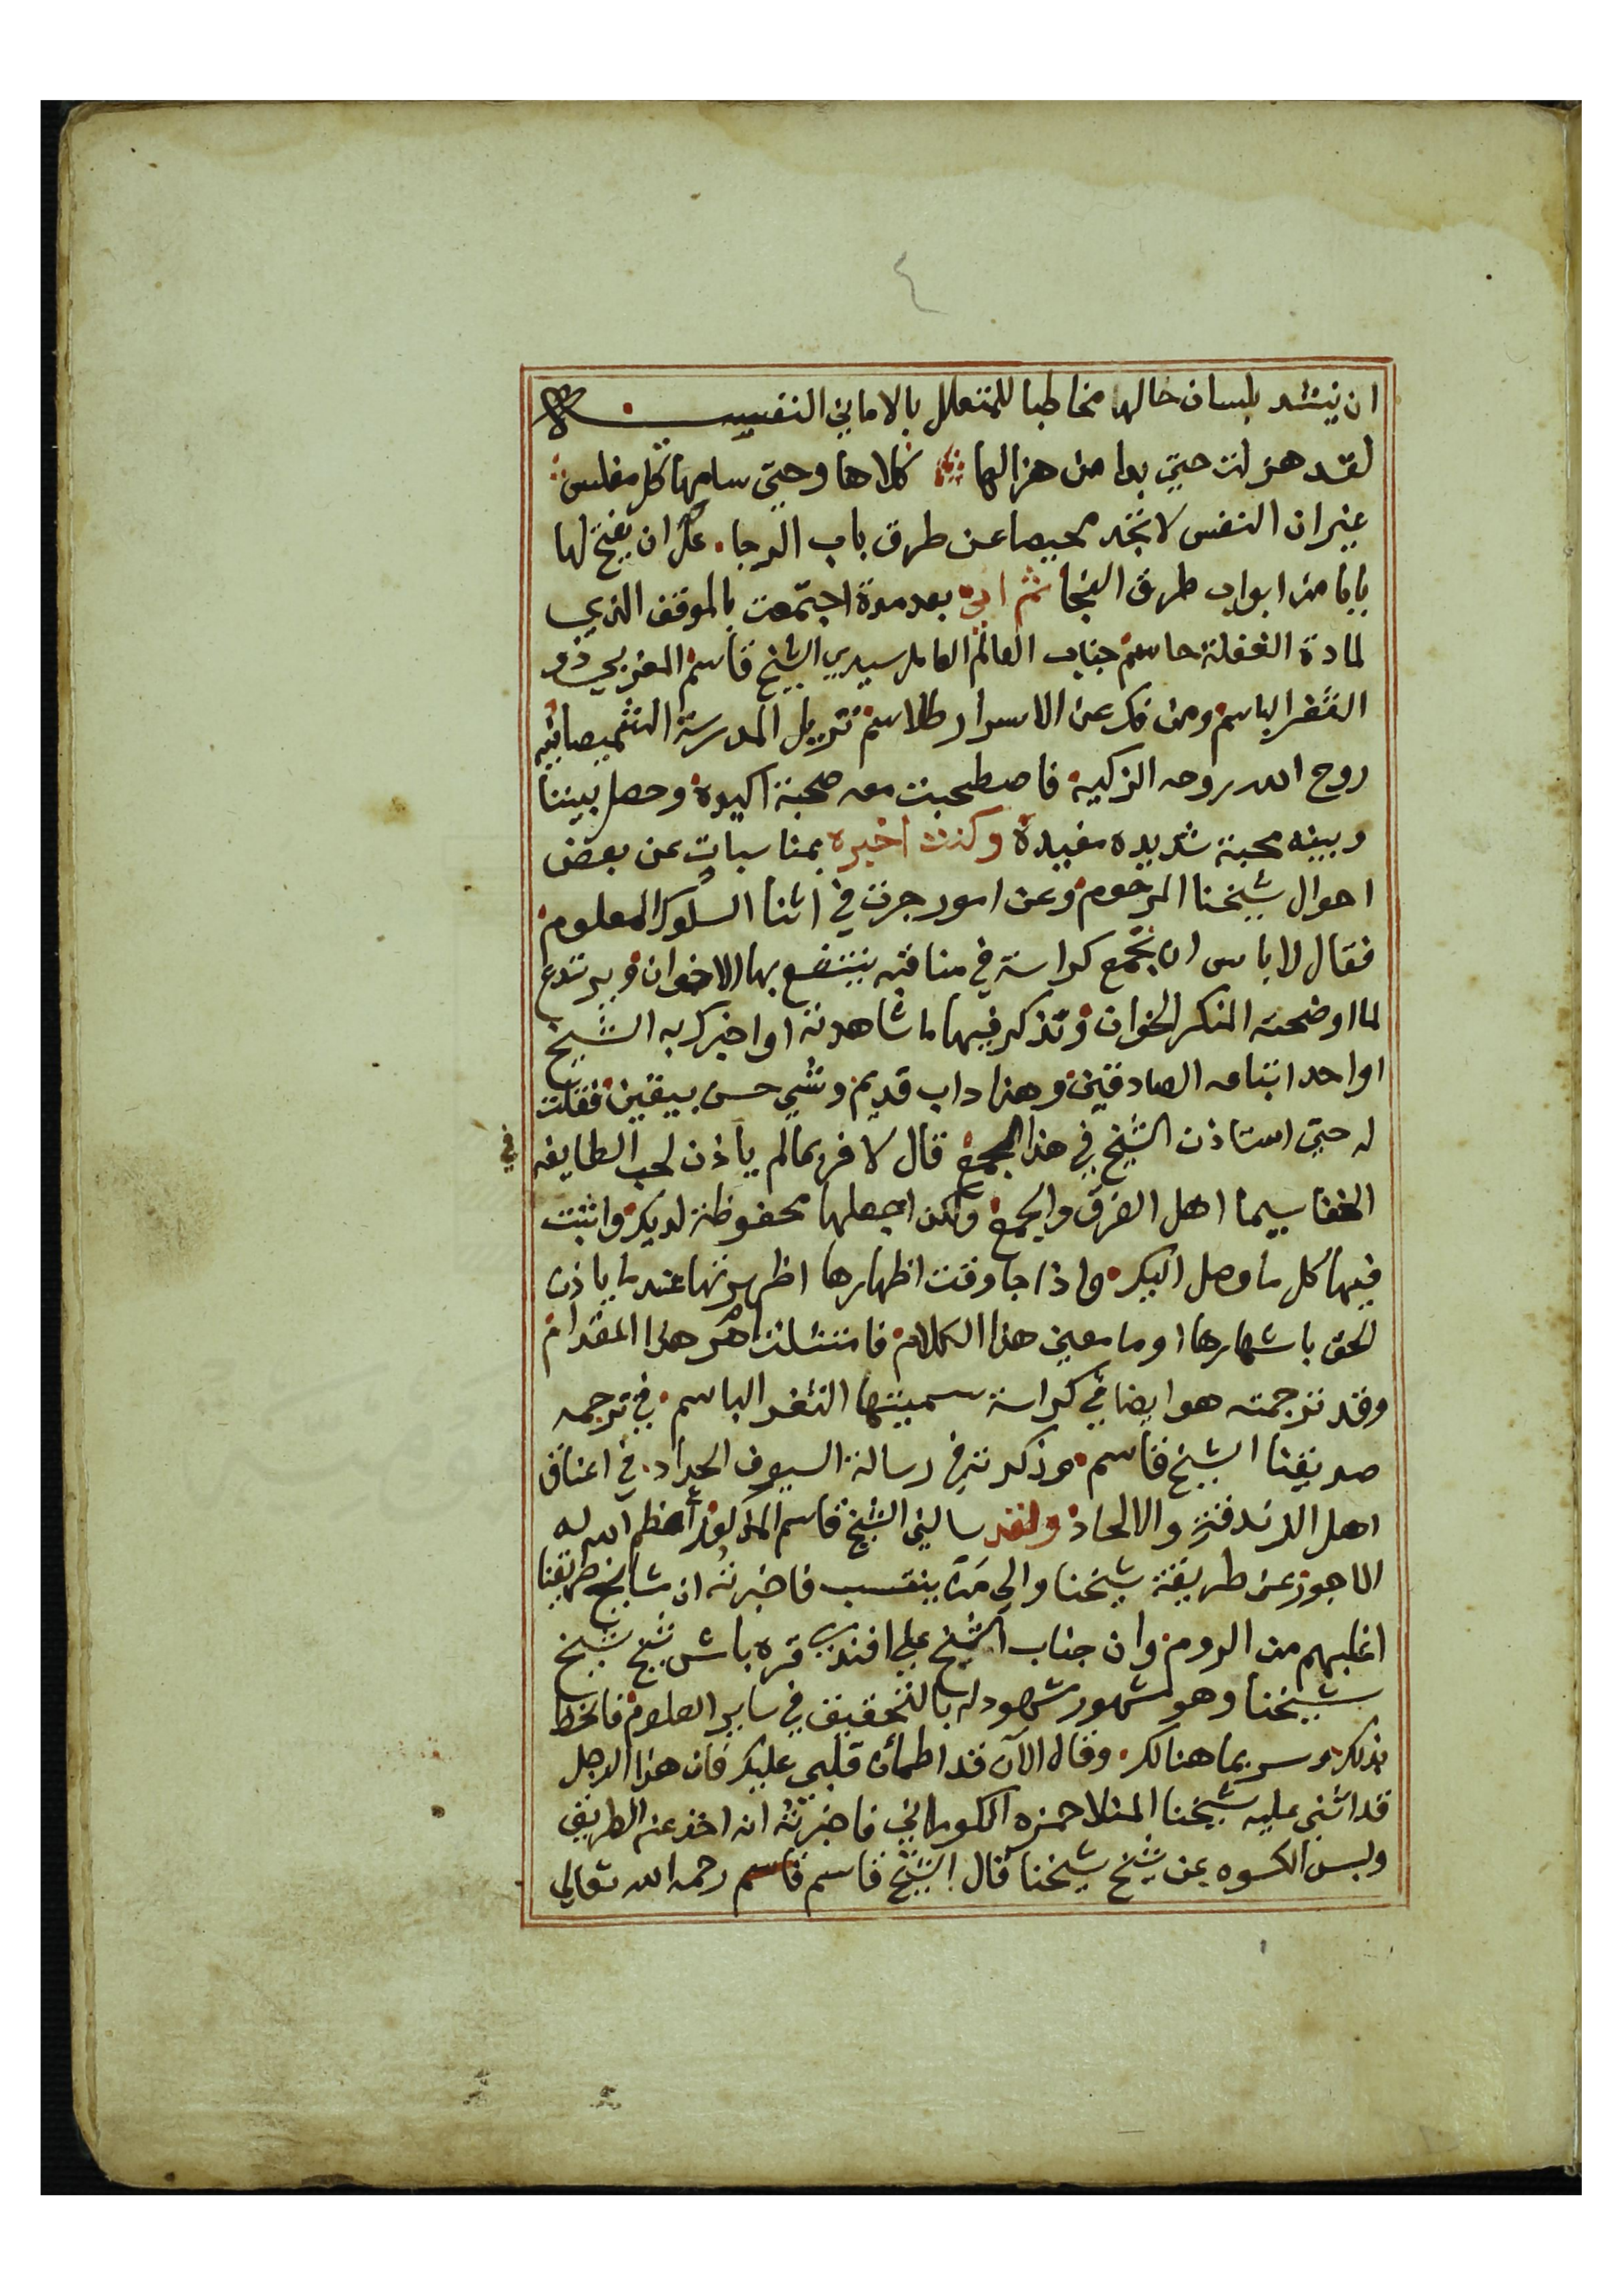 ٤
ان ينشد بلسان حالها مخاطبا للمتعلل بالاماني النفسيه
لقد هزلت حتي بدا من هزالها كلاها وحتي سامها كل مفلس
غير ان النفس لا تجد محيصا عن طرق باب الرجا عل ان يفتح لها
بابا من ابواب طرق النجا ثم اني بعد مدة اجتمعت بالموقف الذي
لمادة الغفلة حاسم جناب العالم العامل سيدي الشيخ قاسم المغربي ذو
الثغر الباسم ومن فك عن الاسرار طلاسم نزيل المدرسة الشميصاتيه
روح الله روحه الزكيه فاصطحبت معه صحبة اكيدة وحصل بيننا
وبينه محبة شديده مفيدة وكنت اخبره بمناسبات عن بعض
احوال شيخنا المرحوم وعن امور جرت في اثنا السلوك المعلوم
فقال لا باس ان تجمع كراسة في مناقبه ينتفع بها الاخوان ويرتدع
لما اوضحته المنكر الخوان وتذكر فيها ما شاهدته او اخبرك به الشيخ
او احد اتباعه الصادقين وهذا داب قديم وشي حسن بيقين فقلت
له حتي استاذن الشيخ في هذا الجمع قال لا فربما لم ياذن لحب الطايفه في
الخفا سيما اهل الفرق والجمع ولكن اجعلها محفوظة لديك واثبت
فيها كل ما وصل اليك واذا جا وقت اظهارها اظهرتها عندما ياذن
الحق باشهارها او ما معني هذا الكلام فامتثلت امر هذا المقدام
وقد ترجمته هو ايضا في كراسة سميتها الثغر الباسم في ترجمه
صديقنا الشيخ قاسم وذكرته في رسالة السيوف الحداد في اعناق
اهل الزندقة والالحاد ولقد سالني الشيخ قاسم المذكور اعظم الله له
الاجور عن طريقة شيخنا والي من ينتسب فاخبرته ان مشايخ طريقنا
اغلبهم من الروم وان جناب الشيخ علي افندي قره باش شيخ شيخ
شيخنا وهو مشهور مشهود له بالتحقيق في ساير العلوم فانحظ
بذلك وسر بما هنالك وقال الآن قد اطمأن قلبي عليك فان هذا الرجل
قد اثني عليه شيخنا المنلا حمزه الكوراني فاخبرته انه اخذ عنه الطريق
ولبس الكسوه عن شيخ شيخنا قال الشيخ قاسم قاسم رحمه الله تعالي